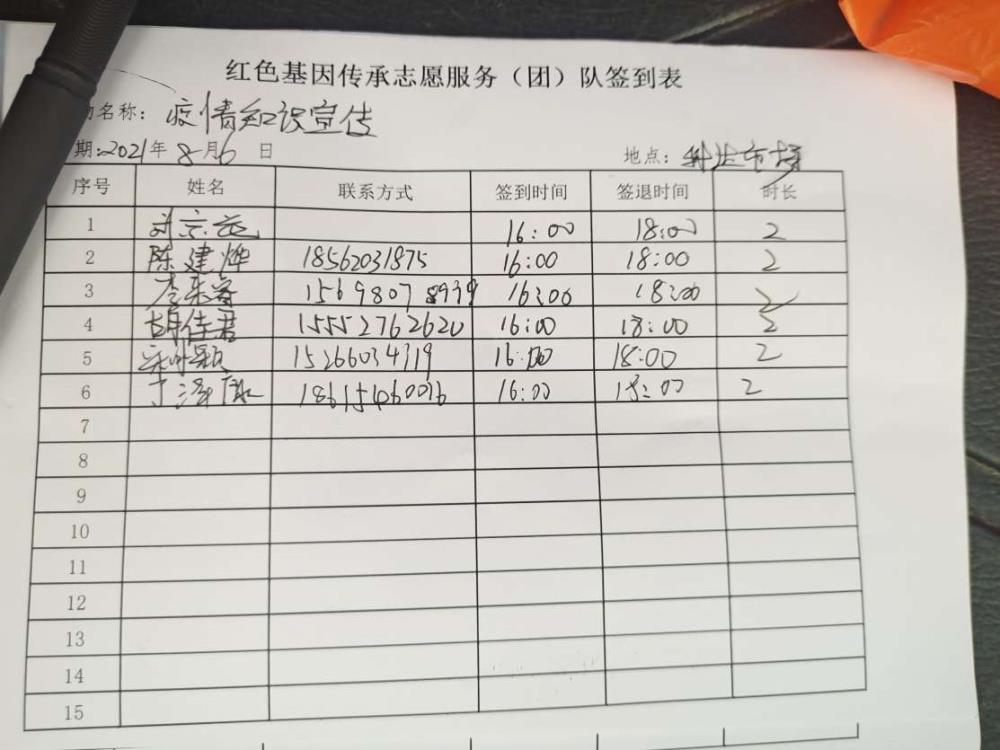 红色基因传承志愿服务（团）队签到表
动名称：疫情知识宣传
期：2021年8月6日 地点：科达市场
序号 姓名 联系方式 签到时间 签退时间 时长
1 16:00 18:00 2
2 陈建烨 18562031875 16:00 18:00 2
3 李乐睿 15698078939 16:00 18:00 2
4 胡佳君 15552762620 16:00 18:00 2
5 15266034319 16:00 18:00 2
6 丁泽康 18615460016 16:00 18:00 2
7
8
9
10
11
12
13
14
15